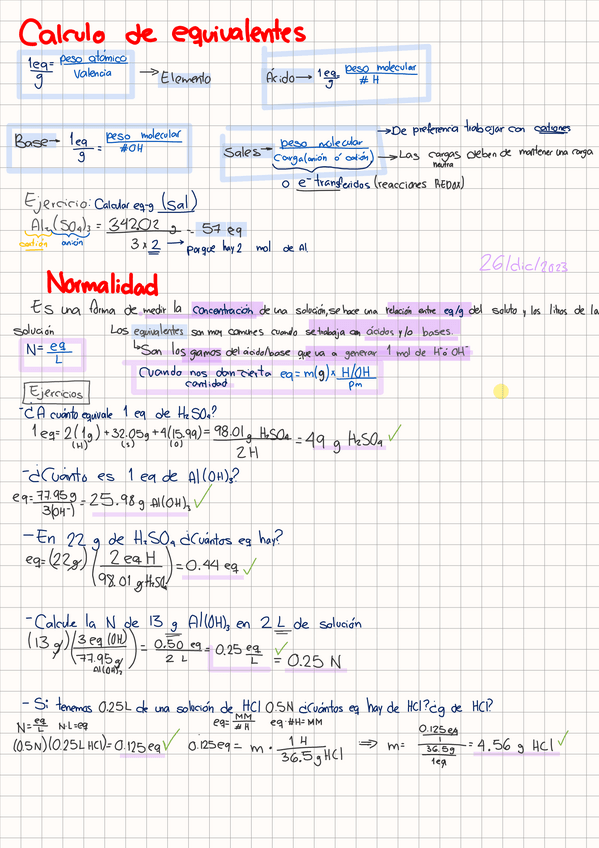 Calculo de equivalentes
1eq/g = peso atómico/Valencia → Elemento
Ácido → 1eq/g peso molecular/# H
Base → 1eq/g = peso molecular/#OH
Sales → peso molecular/Carga(anión ó catión)
→De preferencia trabajar con cationes
→Las cargas deben de mantener una carga neutra
o e- transferidos (reacciones REDOX)
Ejercicio: Calcular eq-g (sal)
Al₂(SO₄)₃ = 342.02 g/3 x 2 = 57 eq
catión anión
→ porque hay 2 mol de Al
26/dic/2023
Normalidad
Es una forma de medir la concentración de una solución, se hace una relación entre eq/g del soluto y los litros de la
solución
N= eq/L
Los equivalentes son muy comunes cuando se trabaja con ácidos y/o bases.
↳Son los gramos del ácido/base que va a generar 1 mol de H⁺ ó OH⁻
Cuando nos dan cierta cantidad eq= m(g) x H/OH/pm
Ejercicios
-¿A cuánto equivale 1 eq de H₂SO₄?
1 eq= 2(1g)+32.05g+4(15.99)= 98.01g H₂SO₄/2H = 49 g H₂SO₄ ✓
(H) (S) (O)
-¿Cuánto es 1 eq de Al(OH)₃?
eq= 77.95g/3(OH⁻) = 25.98g Al(OH)₃ ✓
-En 22 g de H₂SO₄ ¿Cuántos eq hay?
eq= (22g) (2 eq H/98.01 g H₂SO₄) = 0.44 eq ✓
-Calcule la N de 13 g Al(OH)₃ en 2 L de solución
(13 g)(3 eq (OH)/77.95g Al(OH)₃) = 0.50 eq/2 L = 0.25 eq/L ✓ = 0.25 N
- Si tenemos 0.25L de una solución de HCl 0.5N ¿Cuántos eq hay de HCl? ¿g de HCl?
N= eq/L N·L=eq
eq= MM/#H eq·#H=MM
(0.5N)(0.25L HCl)= 0.125 eq ✓
0.125eq = m · 1 H/36.5g HCl ⇒ m= 0.125 eq/1/36.5g/1eq = 4.56 g HCl ✓